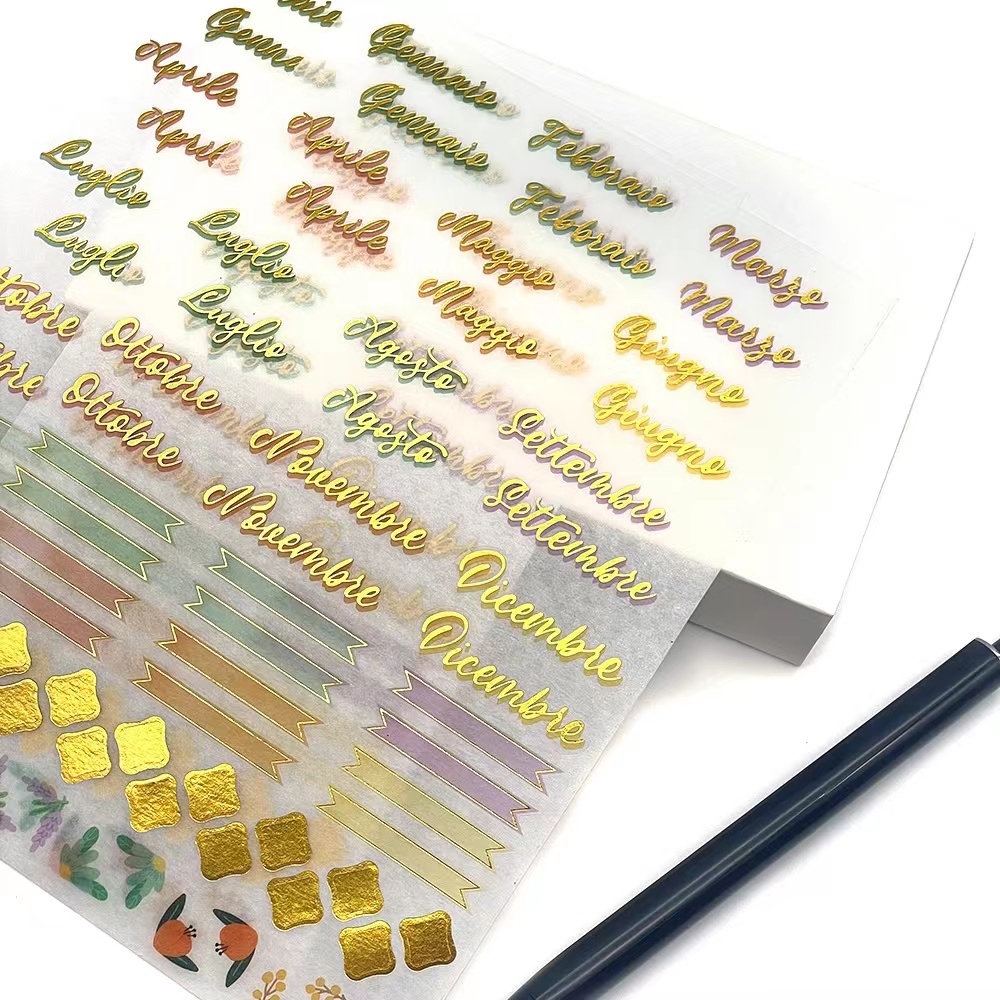 Gennaio
Gennaio
Gennaio
Febbraio
Febbraio
Marzo
Marzo
Aprile
Aprile
Aprile
Aprile
Maggio
Maggio
Giugno
Giugno
Luglio
Luglio
Luglio
Luglio
Agosto
Agosto
Settembre
Settembre
Ottobre
Ottobre
Novembre
Novembre
Dicembre
Dicembre